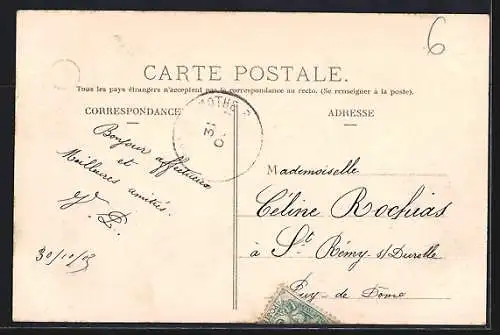 6
CARTE POSTALE.
Tous les pays étrangers n'acceptent pas la correspondance au recto. (Se renseigner à la poste).
CORRESPONDANCE
ADRESSE
31
Bonjour affectueux
et
Meilleures amitiés.
D.
30/10/
Mademoiselle
Céline Rochias
à St Rémy s/Durolle
Puy-de Dome